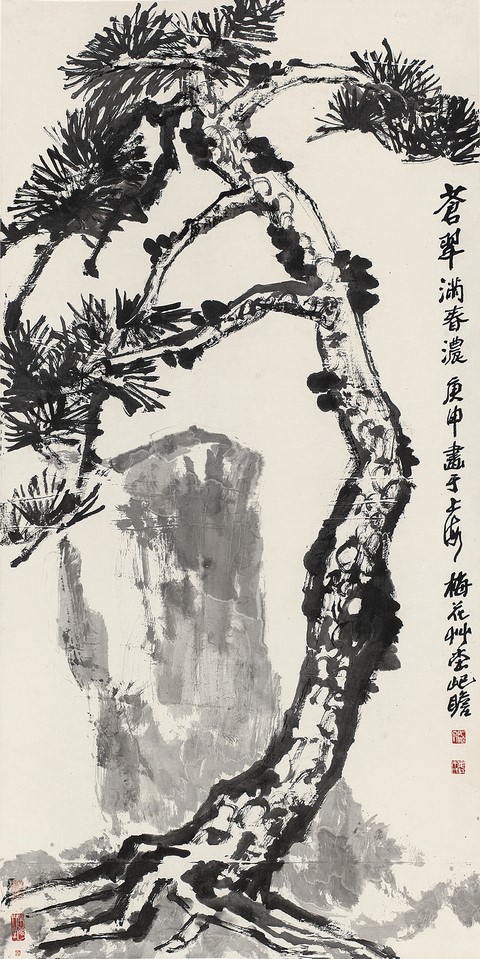 蒼翠滿春濃 庚申畫于上海 梅花艸堂屺瞻